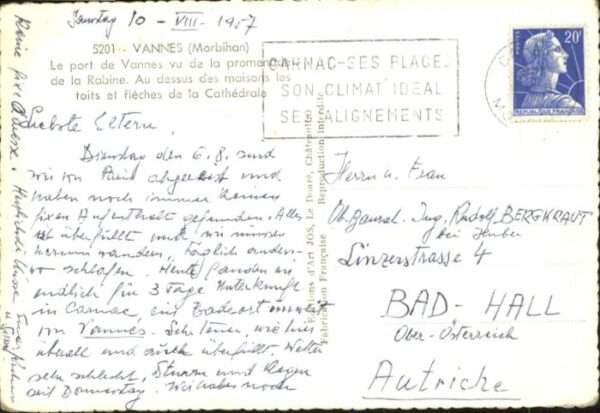 Samstag 10 - VIII - 1957
5201 - VANNES (Morbihan)
Le port de Vannes vu de la promenade
de la Rabine. Au dessus des maisons les
toits et flèches de la Cathédrale
CARNAC-SES PLAGES
SON CLIMAT IDEAL
SES ALIGNEMENTS
20F
REPUBLIQUE FRANÇAISE
Liebste Eltern,
Dienstag den 6.8. sind
wir von Paris abgereist und
haben noch immer keinen
fixen Aufenthalt gefunden. Alles
ist überfüllt und wir müssen
herumwandern, täglich anders-
wo schlafen. Heute fanden wir
endlich für 3 Tage Unterkunft
in Carnac, ein Badeort unweit
von Vannes. Sehr teuer, wie hier
überall und auch überfüllt. Wetter
sehr schlecht, Sturm und Regen
seit Donnerstag. Wir haben noch
Keine fixe Adresse. Herzlichste Küsse
Editions d'Art JOS, Le Doaré, Châteaulin
Fabrication Française Reproduction interdite
Herrn u. Frau
Ing. Rudolf BERGKRAUT
bei Huber
Linzerstrasse 4
BAD-HALL
Ober-Österreich
Autriche